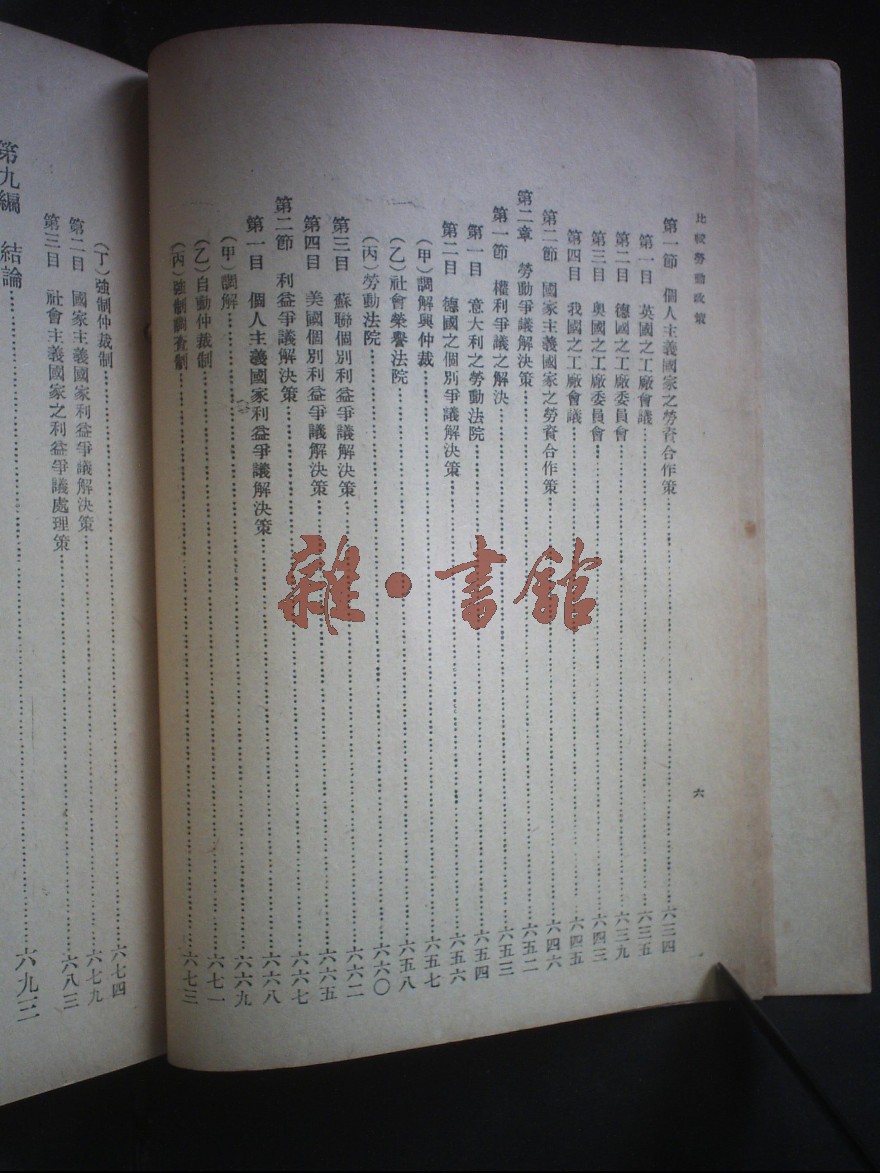 比較勞動政策
六
第一節 個人主義國家之勞資合作策……六三四
第一目 英國之工廠會議……六三五
第二目 德國之工廠委員會……六三九
第三目 奧國之工廠委員會……六四三
第四目 我國之工廠會議……六四五
第二節 國家主義國家之勞資合作策……六四六
第二章 勞動爭議解決策……六五二
第一節 權利爭議之解決……六五三
第一目 意大利之勞動法院……六五四
第二目 德國之個別爭議解決策……六五六
(甲)調解與仲裁……六五七
(乙)社會榮譽法院……六五八
(丙)勞動法院……六六〇
第三目 蘇聯個別利益爭議解決策……六六二
第四目 美國個別利益爭議解決策……六六五
第二節 利益爭議解決策……六六七
第一目 個人主義國家利益爭議解決策……六六八
(甲)調解……六六九
(乙)自動仲裁制……六七一
(丙)強制調查制……六七三
(丁)強制仲裁制……六七四
第二目 國家主義國家利益爭議解決策……六七九
第三目 社會主義國家之利益爭議處理策……六八三
第九編 結論……六九三
雜·書館